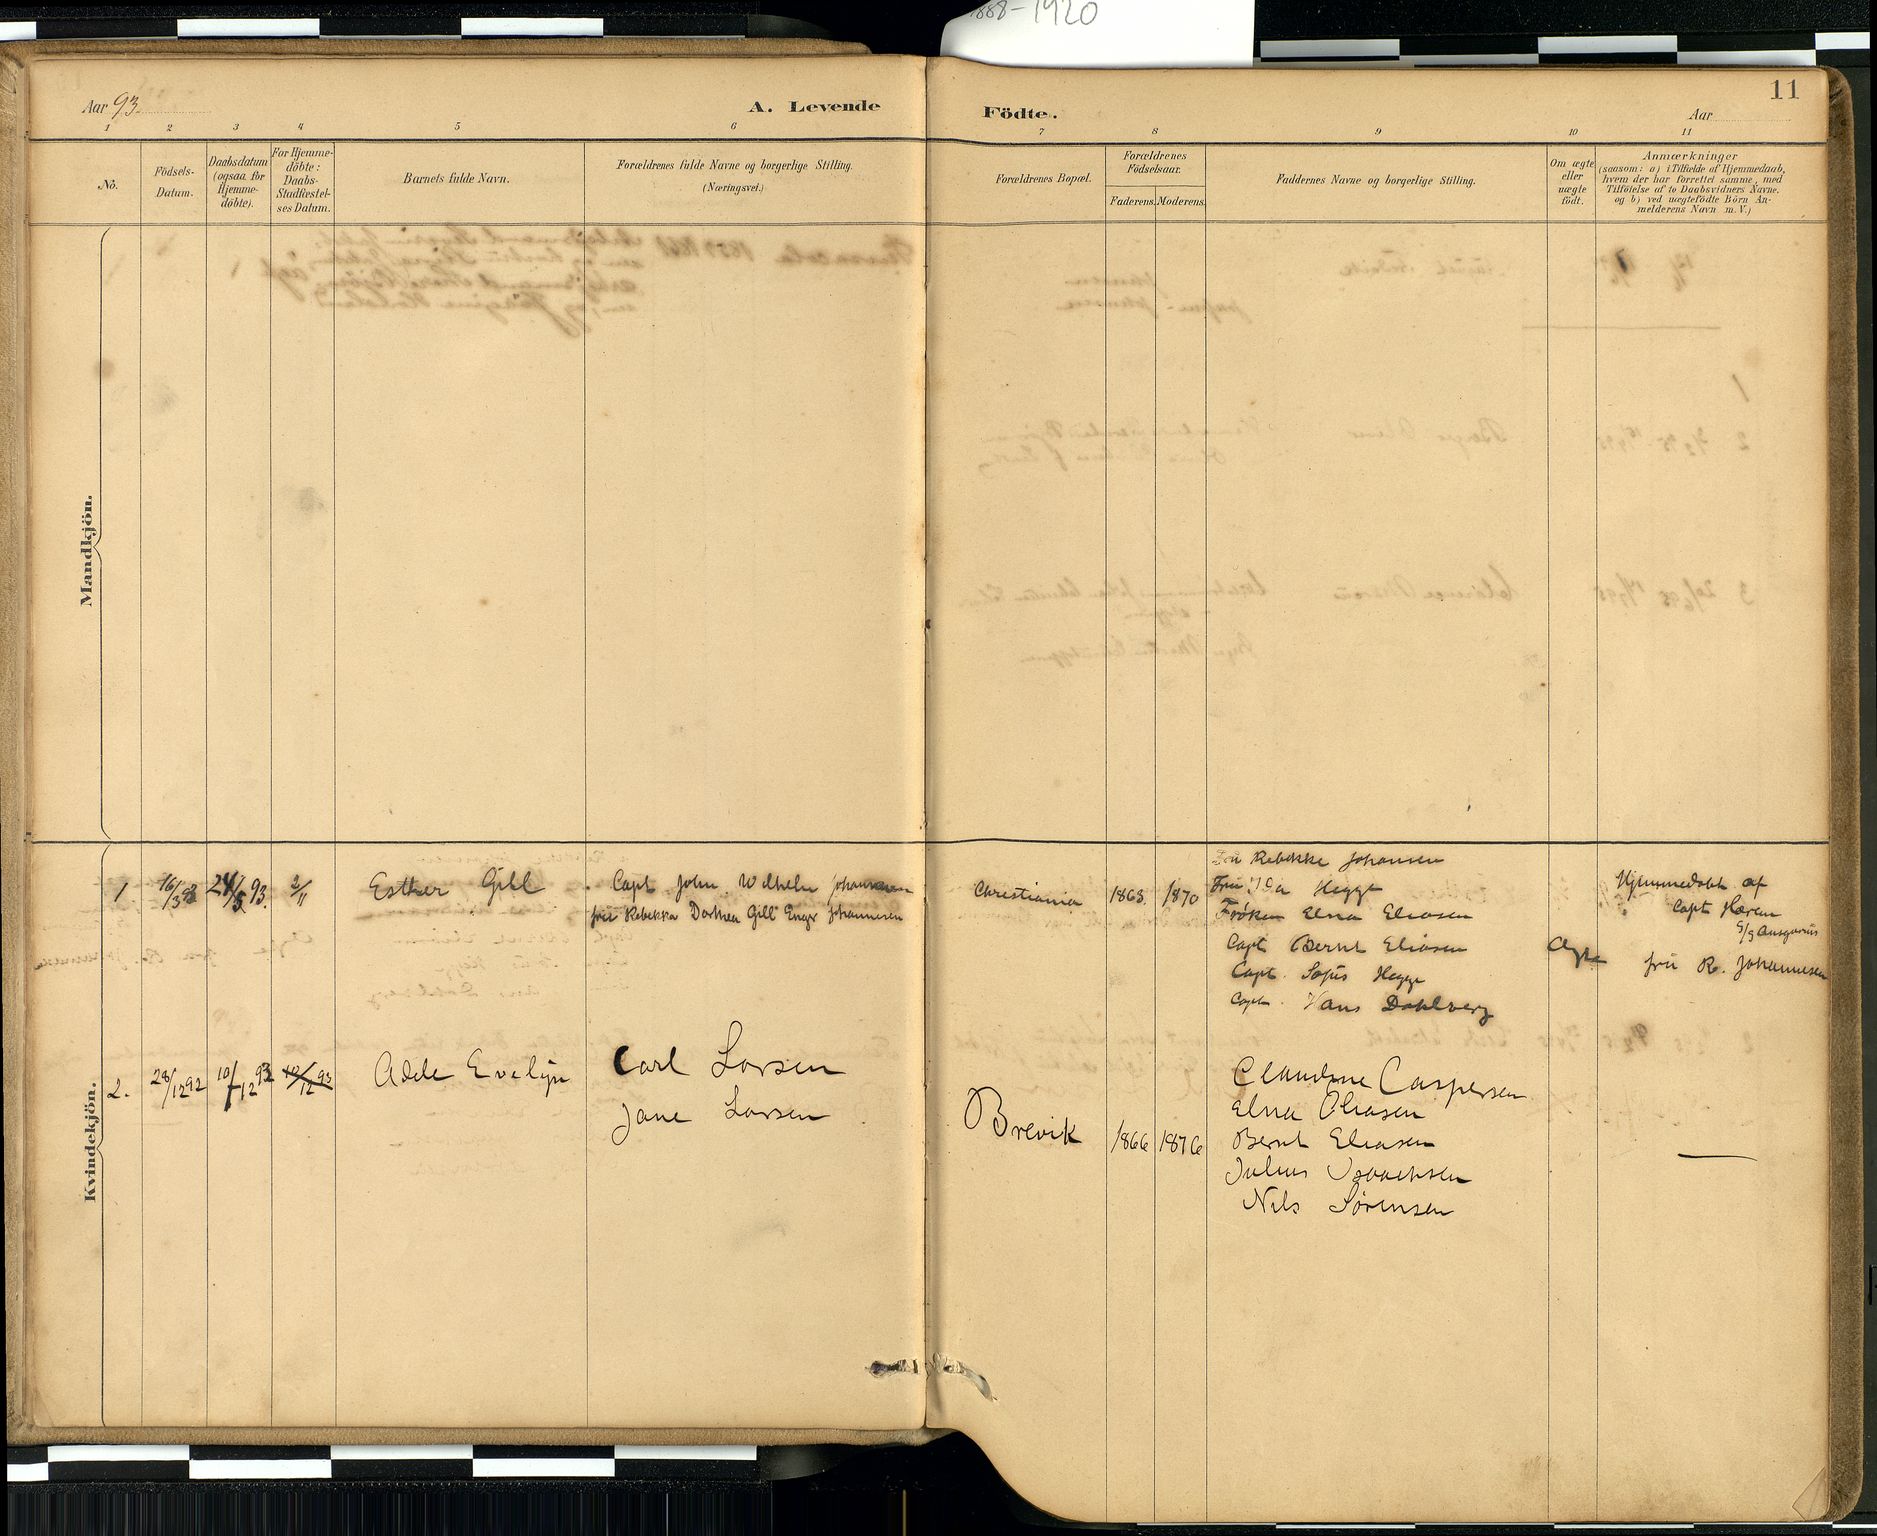 1888-1920
11
Aar 93.
A. Levende
Födte.
Aar
1 2 3 4 5 6 7 8 9 10 11
No.
Födsels-
Datum.
Daabsdatum
(ogsaa for
Hjemme-
döbte).
For Hjemme-
döbte:
Daabs-
Stadfæstel-
ses Datum.
Barnets fulde Navn.
Forældrenes fulde Navne og borgerlige Stilling.
(Næringsvei.)
Forældrenes Bopæl.
Forældrenes
Födselsaar.
Faderens. Moderens.
Faddernes Navne og borgerlige Stilling.
Om ægte
eller
uægte
födt.
Anmærkninger
(saasom: a) i Tilfælde af Hjemmedaab,
hvem der har forrettet samme, med
Tilföielse af to Daabsvidners Navne.
og b) ved uægtefödte Börn An-
melderens Navn m. V.)
Mandkjön.
Kvindekjön.
1 16/3 93 24/5 93. 2/11 Esther Gill
Capt. John Wilhelm Johannesen
fru Rebekka Dorthea Gill Enger Johannesen
Christiania 1863. 1870
Fru Rebekke Johansen
Fru Ida Hegge
Frøken Elna Eliasen
Capt Bernt Eliasen
Capt. Sofus Hegge
Capt. Hans Dahlberg
Ægte
Hjemmedøbt af
Capt Hæren
S/S Ansgarius
fru R. Johannesen
2. 28/12 92 10/12 93 10/12 93 Adele Evelyn
Carl Larsen
Jane Larsen
Brevik 1866 1876
Claudine Caspersen
Elna Eliasen
Bernt Eliasen
Julius Isaachsen
Nils Sørensen